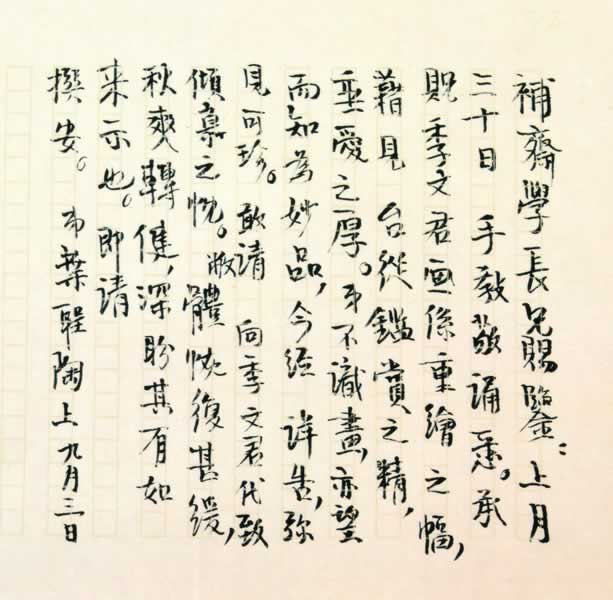 補齋學長兄賜鑒：上月
三十日　手教敬誦悉。承
貺季文君画係重繪之幅，
藉見　台從鑑賞之精，
垂愛之厚。弟不識畫，亦望
而知為妙品，今經　詳告，彌
見可珍。敢請　向季文君代致
傾慕之忱。敝體恢復甚緩，
秋爽轉健，深盼其有如
来示也。即請
撰安。　弟葉聖陶上九月三日